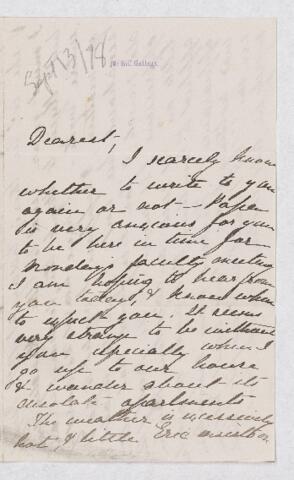 Sept 3/78
McGill College.
Dearest,
I scarcely know
whether to write to you
again or not — Papa
is very anxious for you
to be here in time for
Monday's faculty meeting
I am hoping to hear from
you today, & know when
to expect you. It seems
very strange to be without
you specially when I
go up to our house
& wander about its
desolate apartments
The weather is excessively
hot, & little Eric